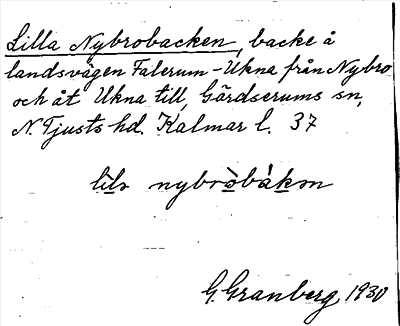 Lilla Nybrobacken, backe å
landsvägen Falerum-Ukna från Nybro
och åt Ukna till, Gärdserums sn,
N. Tjusts hd. Kalmar l. 37
lila nybrobákən
G. Granberg 1930